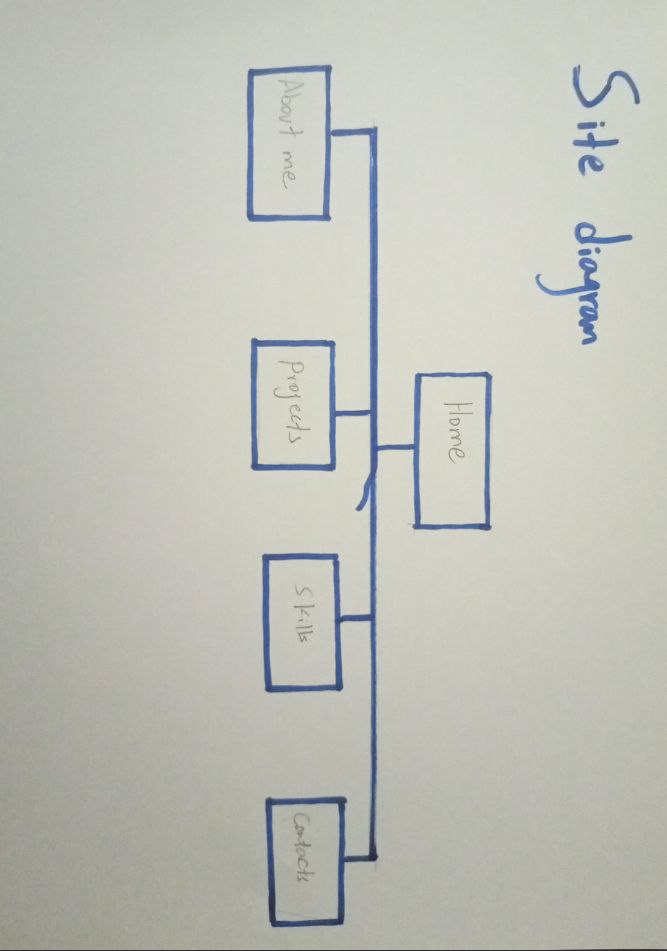 Site diagram
Home
About me
Projects
Skills
Contacts